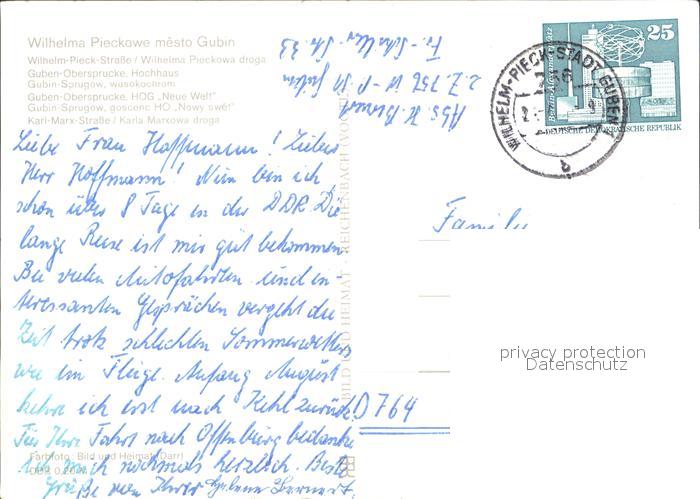 Wilhelma Pieckowe město Gubin
Wilhelm-Pieck-Straße / Wilhelma Pieckowa droga
Guben-Obersprucke, Hochhaus
Gubin-Sprugow, wusokochrom
Guben-Obersprucke, HOG „Neue Welt"
Gubin-Sprugow, goscenc HO „Nowy swět"
Karl-Marx-Straße / Karla Marxowa droga
Liebe Frau Hoffmann! Lieber
Herr Hoffmann! Nun bin ich
schon über 8 Tage in der DDR. Die
lange Reise ist mir gut bekommen.
Bei vielen Autofahrten und in-
teressanten Gesprächen vergeht die
Zeit trotz schlechten Sommerwetters
wie im Fluge. Anfang August
kehre ich erst nach Kehl zurück.
Für Ihre Fahrt nach Offenburg bedanke
ich mich nochmals herzlich. Beste
Grüße von Ihrer Helene Bernert.
Farbfoto: Bild und Heimat (Darr)
BILD UND HEIMAT REICHENBACH (VOGTL)
Abs. H. Bernert
z. Z. 756 W.-P.-St. Guben
Fr.-Schiller-Str. 33
25
Berlin-Alexanderplatz
DEUTSCHE DEMOKRATISCHE REPUBLIK
WILHELM-PIECK-STADT GUBEN 1
756
b
Familie
D 764
privacy protection
Datenschutz